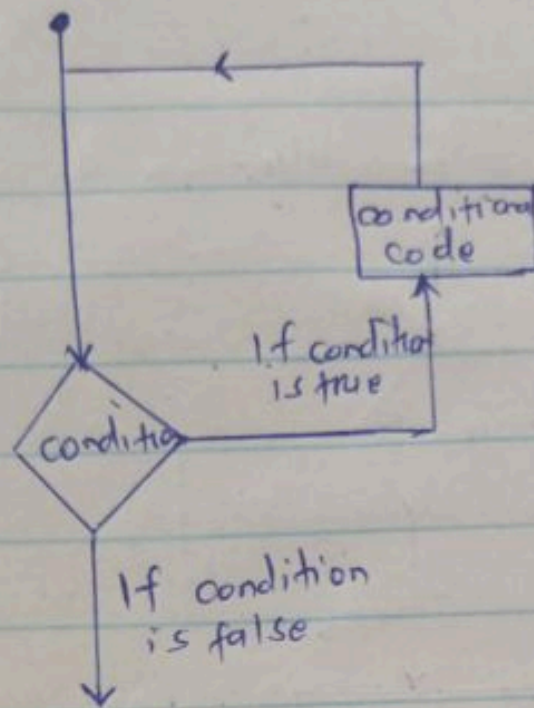 conditional
code
If condition
is true
condition
If condition
is false